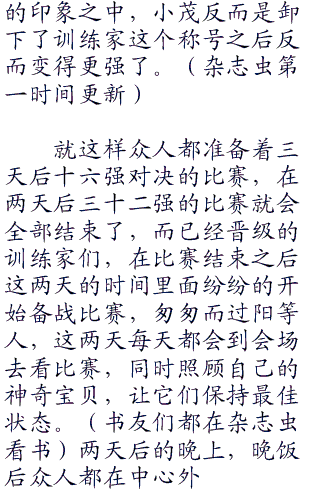 的印象之中，小茂反而是卸
下了训练家这个称号之后反
而变得更强了。（杂志虫第
一时间更新）
就这样众人都准备着三
天后十六强对决的比赛，在
两天后三十二强的比赛就会
全部结束了，而已经晋级的
训练家们，在比赛结束之后
这两天的时间里面纷纷的开
始备战比赛，匆匆而过阳等
人，这两天每天都会到会场
去看比赛，同时照顾自己的
神奇宝贝，让它们保持最佳
状态。（书友们都在杂志虫
看书）两天后的晚上，晚饭
后众人都在中心外